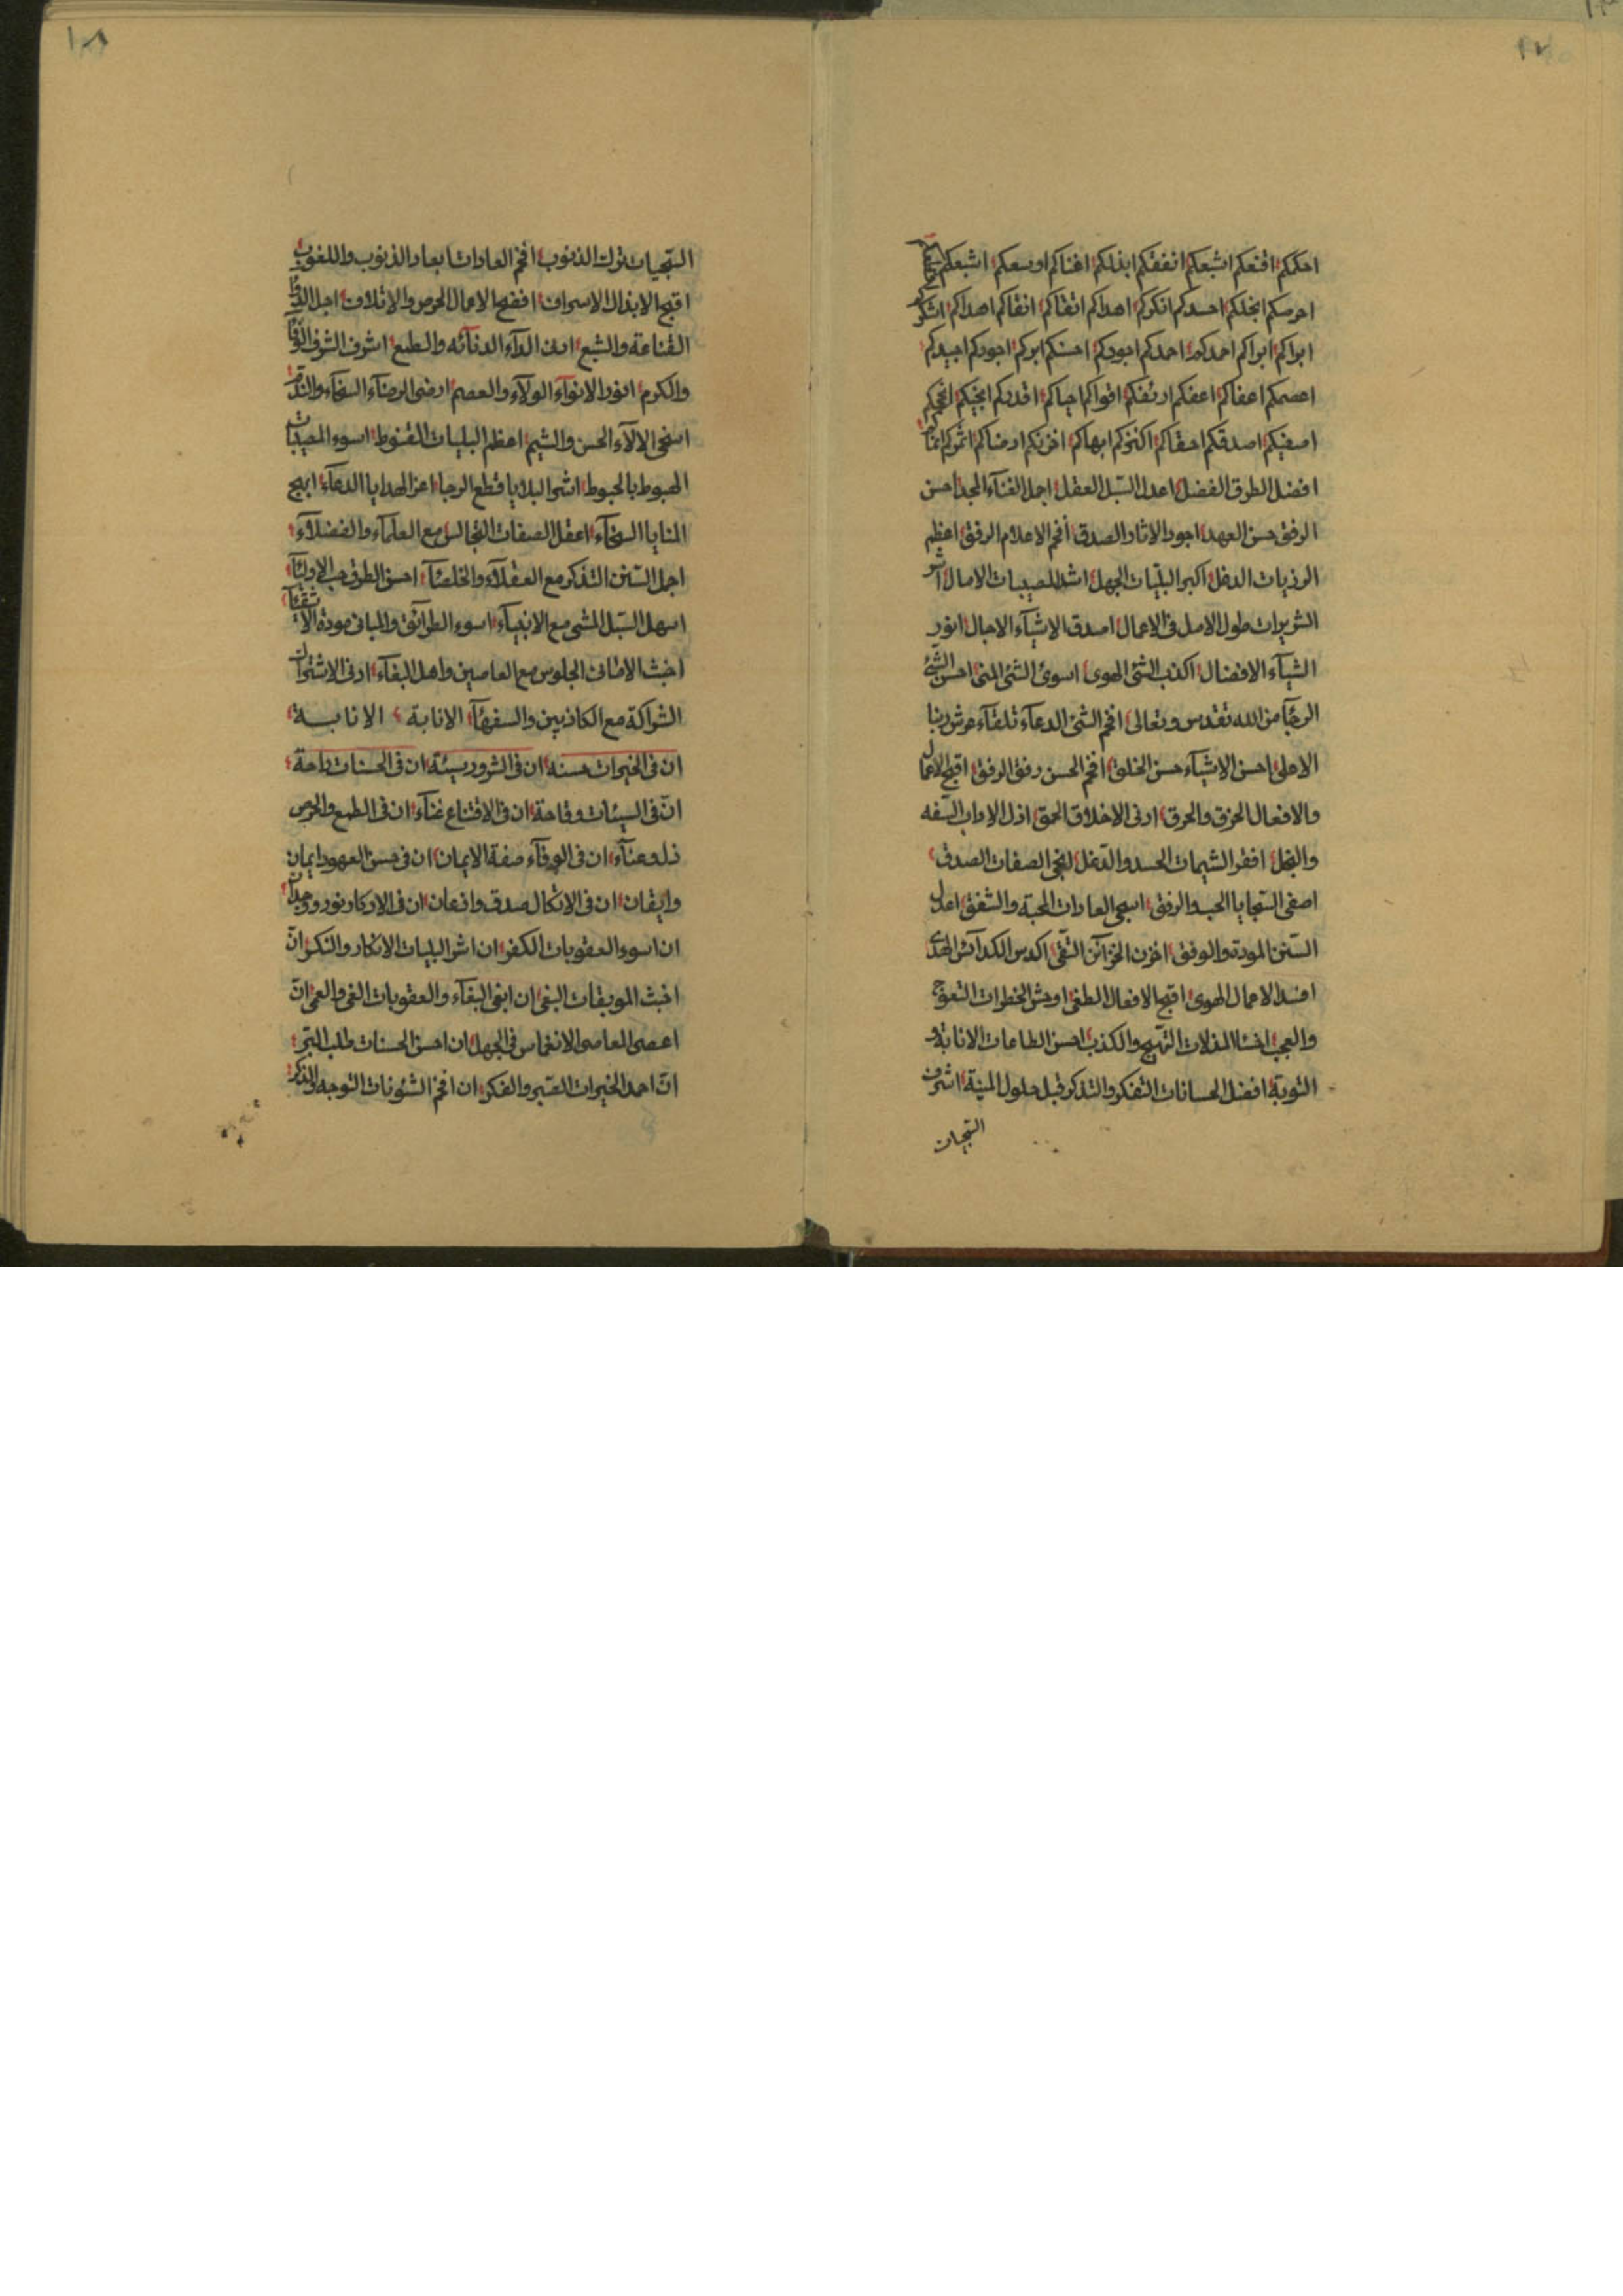 احكمكم اقنعكم اشبعكم انفقكم ابذلكم اغناكم اوسعكم اشبعكم
احرصكم ابخلكم احسدكم انكركم اهداكم اتقاكم انقاكم اهداكم
ابراكم ابراكم احمدكم احمدكم اجودكم احسنكم ابركم اجودكم اجيدكم
اعصمكم اعفاكم اعفكم ارئفكم اقواكم احياكم اقدركم
اصفيكم اصدقكم احقاكم اكنزكم ابهاكم اخزنكم ارضاكم
افضل الطرق الفضل اعدل السبل العقل اجل الغنآء المجد احسن
الرفق حسن العهد اجود الاثار الصدق افخم الاعلام الرفق اعظم
الرزيات الدغل اكبر البليات الجهل اشد المصيبات الامال
الشريرات طول الامل فى الاعمال اصدق الاشيآء الاجال انور
الشيآء الافضال اكذب الشئ الهوى اسوئ الشئ المنى احسن الشئ
الرجآ من الله تقدس وتعالى افخم الشئ الدعآء تلقآء عرش ربنا
الاعلى احسن الاشيآء حسن الخلق افخم الحسن رفق الرفق اقبح الاعمال
والافعال الخرق والحرق ادنى الاخلاق الحمق اذل الاداب السفه
والبخل افقر الشيمات الحسد والدغل افخم الصفات الصدق
اصفى السجايا الحب والرفق اسجى العادات المحبة والشفق اعدل
السنن المودة والوفق اخزن الخزآئن التقى اكدس الكدآئس الهدى
افسد الاعمال الهوى اقبح الافعال الطغى اوحش الخطرات التعوج
والعجب المذلات والكذب احسن الطاعات الانابة و
التوبة افضل الحسانات التفكر والتذكر قبل حلول المنية اشرف
ترك الذنوب افخم العادات ابعاد الذنوب واللغوب
اقبح الابذال الاسراف افضح الاعمال الحرص والاتلاف اجل
القناعة والشبع ادن الدآء الدنآئه والطمع اشرف الشرف
والكرم انور الانوآء الولآء والعصم ارضى الرضآء السخآء
اسخى الالآء الحسن والشيم اعظم البليات القنوط اسوء المصيبات
الهبوط بالحبوط اشر البلايا قطع الرجا اعز الهدايا الدعآء ابهج
المنايا السخآء اعقل الصفات التجالس مع العلمآء والفضلآء
اجمل السنن التذكر مع العقلآء والخلصآء احسن الطرق حب الاوليآء
اسهل السبل المشى مع الانبيآء اسوء الطرآئق والمبانى مودة الاشقيآء
اخبث الامانى الجلوس مع العاصين واهل البغآء ادنى الاشتراك
الشراكة مع الكاذبين والسفهآء الانابة الانابـــة
ان فى الخيرات حسنه ان فى الشرور سيئة ان فى الحسنات راحة
ان فى السيئات وقاحة ان فى الاقتناع غنآء ان فى الطمع والحرص
ذل وعنآء ان فى الوفآء صفة الايمان ان فى حسن العهود ايمان
وايقان ان فى الاتكال صدق واذعان ان فى الاذكار نور
ان اسوء العقوبات الكفر ان اشر البليات الانكار والنكر ان
اخبث الموبقات البغى ان ابغى البغآء والعقوبات الغى والعمى ان
اعصى المعاصى الانغماس فى الجهل ان احسن الحسنات طلب
ان احمد الخيرات الصبر والفكر ان افخم الشئونات التوجه والذكر